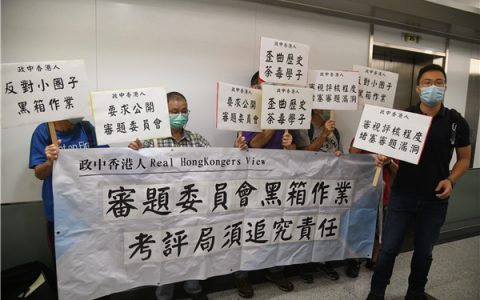 政中香港人
反對小圈子
黑箱作業
政中香港人
要求公開
審題委員會
政中香港人
要求公開
審題委員會
政中香港人
歪曲歷史
荼毒學子
歪曲歷史
荼毒學子
政中香港人
反對小圈子
黑箱作業
政中香港人
審視評核程度
堵塞審題漏洞
政中香港人 Real HongKongers View
審題委員會黑箱作業
考評局須追究責任